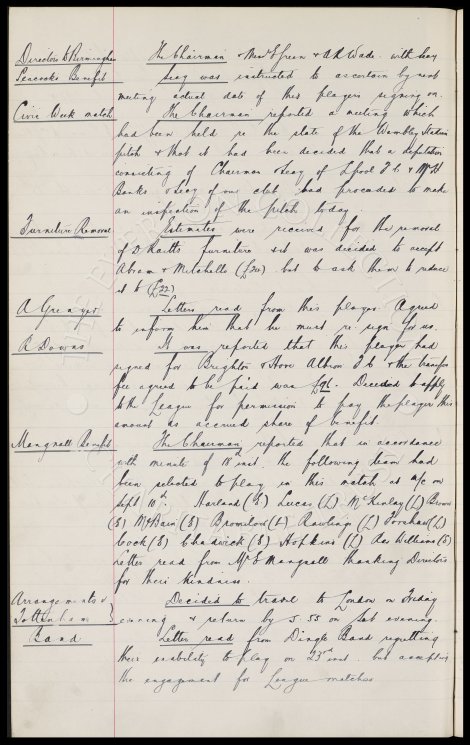 Directors to Birmingham The Chairman & Messrs Green & A.R. Wade. with Secy
Peacocks Benefit Secy was instructed to ascertain by next
meeting actual date of this players signing on.
Civic Week match The Chairman reported a meeting which
had been held re the state of the Wembley Stadium
pitch & that it had been decided that a deputation
consisting of Chairman & Secy of Lpool F.C. & Mr H
Banks & Secy of our club had proceeded to make
an inspection of the pitch today.
Furniture Removal Estimates were received for the removal
of D Raitts furniture & it was decided to accept
Abram & Mitchells (£24) but to ask them to reduce
it to (£22)
A Grenyer Letters read from this player. Agreed
to inform him that he must re-sign for us.
R Downs It was reported that this player had
signed for Brighton & Hove Albion F.C. & the transfer
fee agreed to be paid was Decided to apply
to the League for permission to pay the player this
amount as accrued share of benefit.
Mangnall Benefit The Chairman reported that in accordance
with minute of 18th inst. the following team had
been selected to play in this match at m/c on
Sept 10th. Harland (E) Lucas (L) McKinlay (L) Brown
(E) McBain (E) Bromilow (L) Rawlings (L) Forshaw (L)
Cock (E) Chadwick (E) Hopkins (L) Res Williams (E)
Letter read from Mr E Mangnall thanking Directors
for their kindness.
Arrangements v Decided to travel to London on Friday
Tottenham evening & return by 5.55 on Sat evening.
Band Letter read from Dingle Band regretting
their inability to play on 23rd inst. but accepting
the engagement for League matches